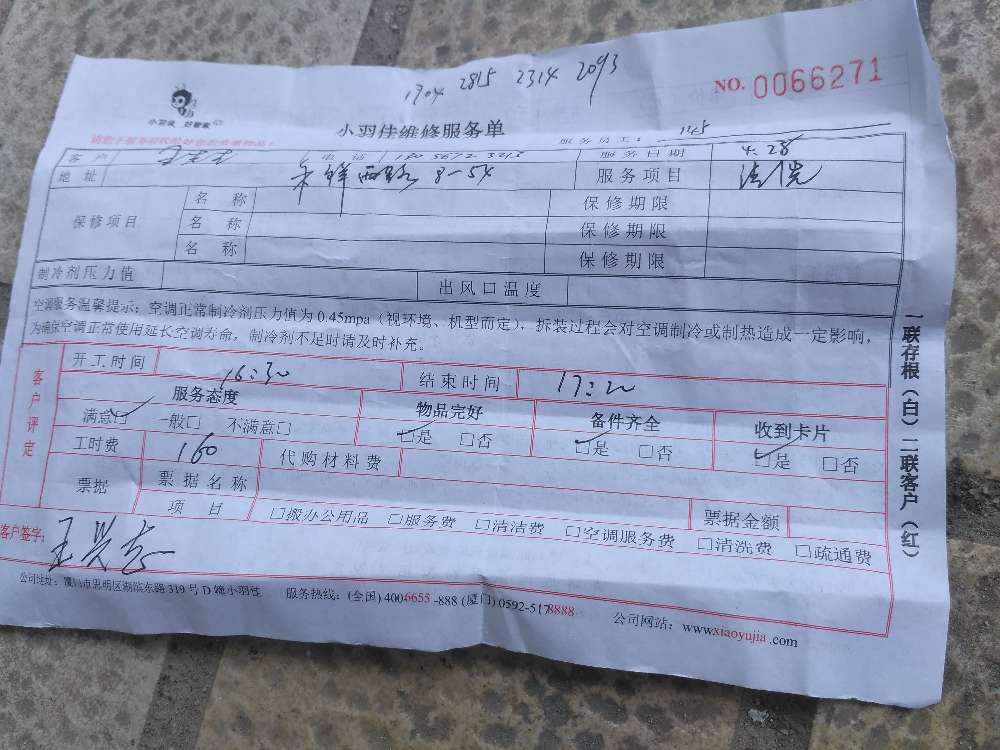 1704 2815 2314 2093
NO. 0066271
小羽佳 好管家
小羽佳维修服务单
服务员工: 1145
客户 电话 服务日期 4.28
地址 禾祥西路 8-54 服务项目 清洗
保修项目 名称 保修期限
名称 保修期限
名称 保修期限
制冷剂压力值 出风口温度
空调服务温馨提示:空调正常制冷剂压力值为0.45mpa(视环境、机型而定),拆装过程会对空调制冷或制热造成一定影响,
为确保空调正常使用延长空调寿命,制冷剂不足时请及时补充。
客户评定
开工时间 16:30 结束时间 17:20
服务态度 物品完好 备件齐全 收到卡片
满意☑ 一般□ 不满意□ ☑是 □否 ☑是 □否 ☑是 □否
工时费 160 代购材料费
票据 票据名称
项目 □搬办公用品 □服务费 □清洁费 □空调服务费 □清洗费 □疏通费
票据金额
客户签字:
公司地址:厦门市思明区湖滨东路319号D幢小羽佳 服务热线:(全国)4006655-888 (厦门)0592-5178888 公司网站:www.xiaoyujia.com
一联存根(白)二联客户(红)